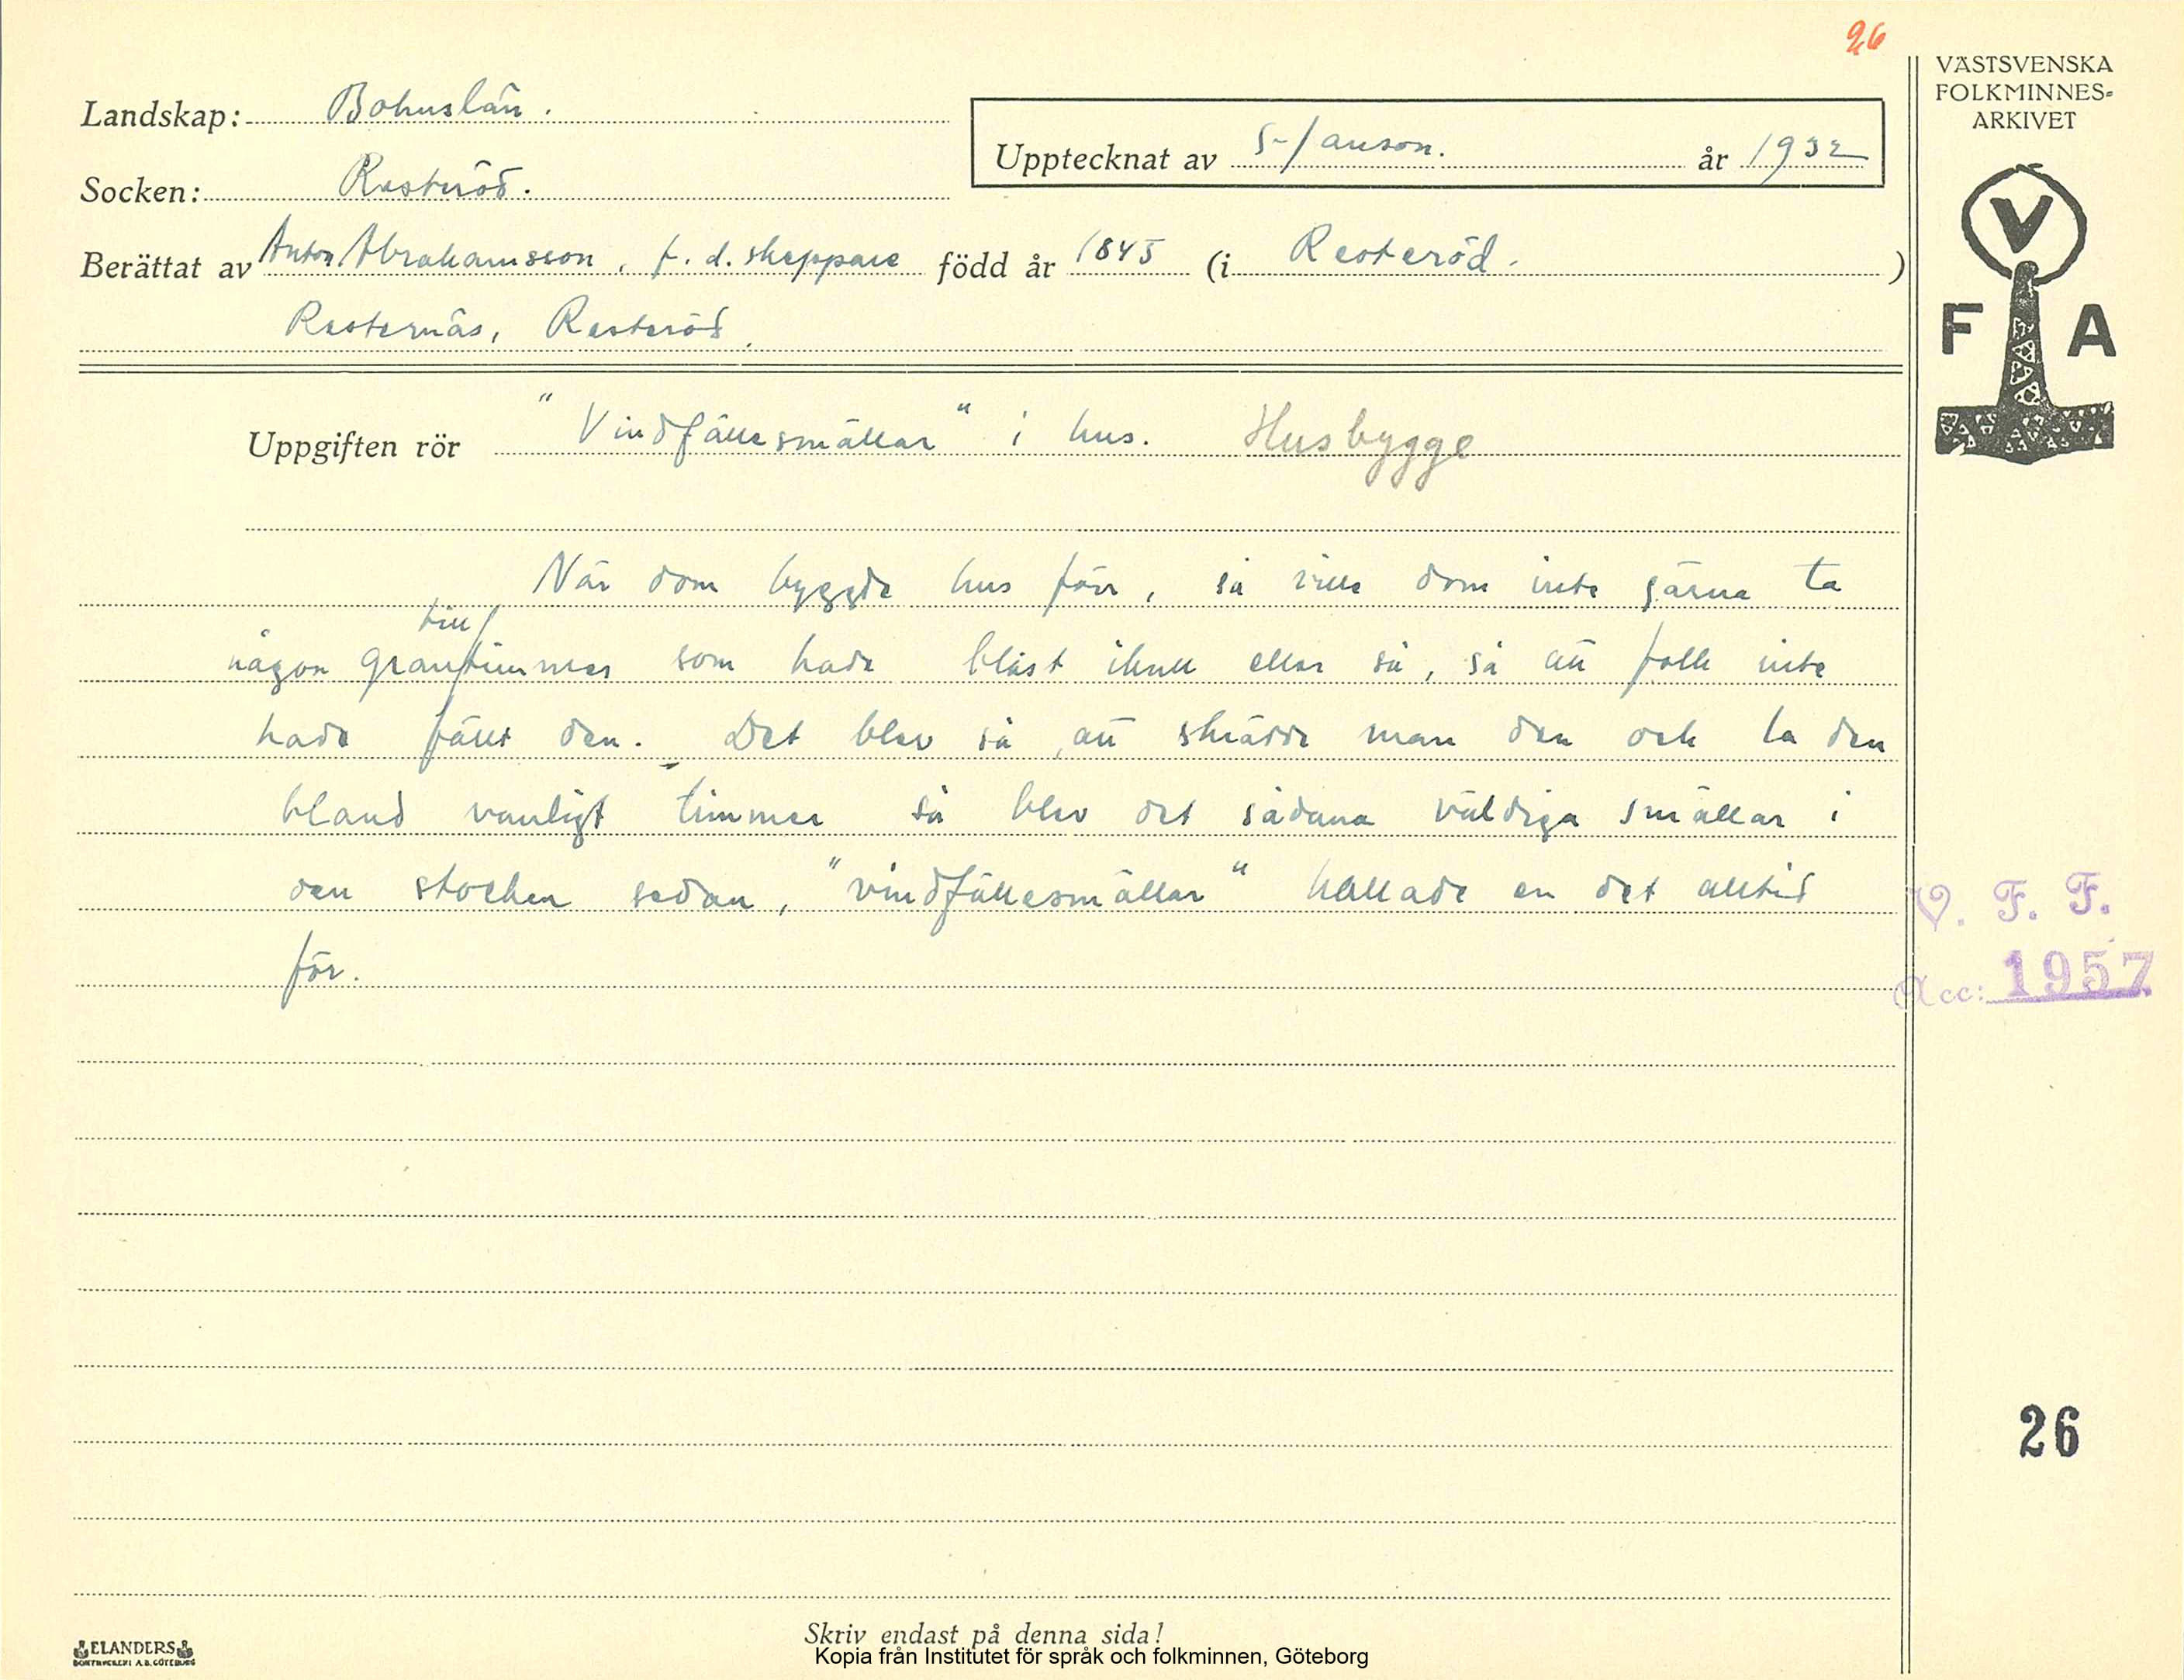 26
VÄSTSVENSKA
FOLKMINNES-
ARKIVET
Landskap: Bohuslän.
Upptecknat av S-Janson. år 1932
Socken: Resteröd.
Berättat av Anton Abrahamsson, f. d. skeppare född år 1845 (i Resteröd.)
Resternäs, Resteröd.
V
F A
Uppgiften rör "Vindfällesmällar" i hus. Husbygge
När dom byggde hus förr, så ville dom inte gärna ta
till
någon grantimmer som hade blåst ikull eller så, så att folk inte
hade fällt den. Det blev så, att skrädde man den och la den
bland vanligt timmer så blev det sådana väldiga smällar i
den stocken sedan, "vindfällesmällar" kallade en det alltid
för.
V. F. F.
Acc: 1957
26
Skriv endast på denna sida!
Kopia från Institutet för språk och folkminnen, Göteborg
ELANDERS
BOKTRYCKERI A.B. GÖTEBORG